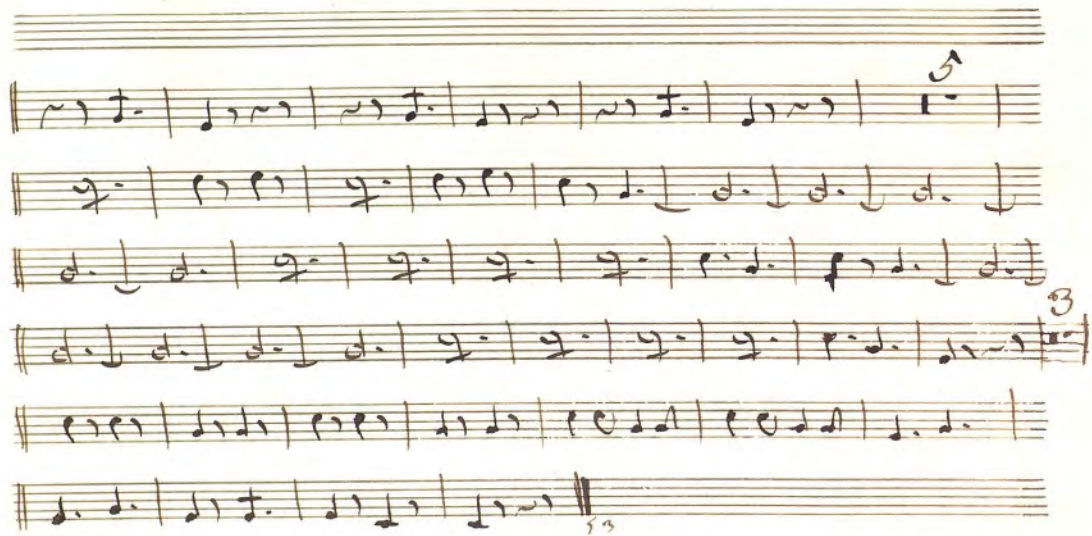 5
3
53